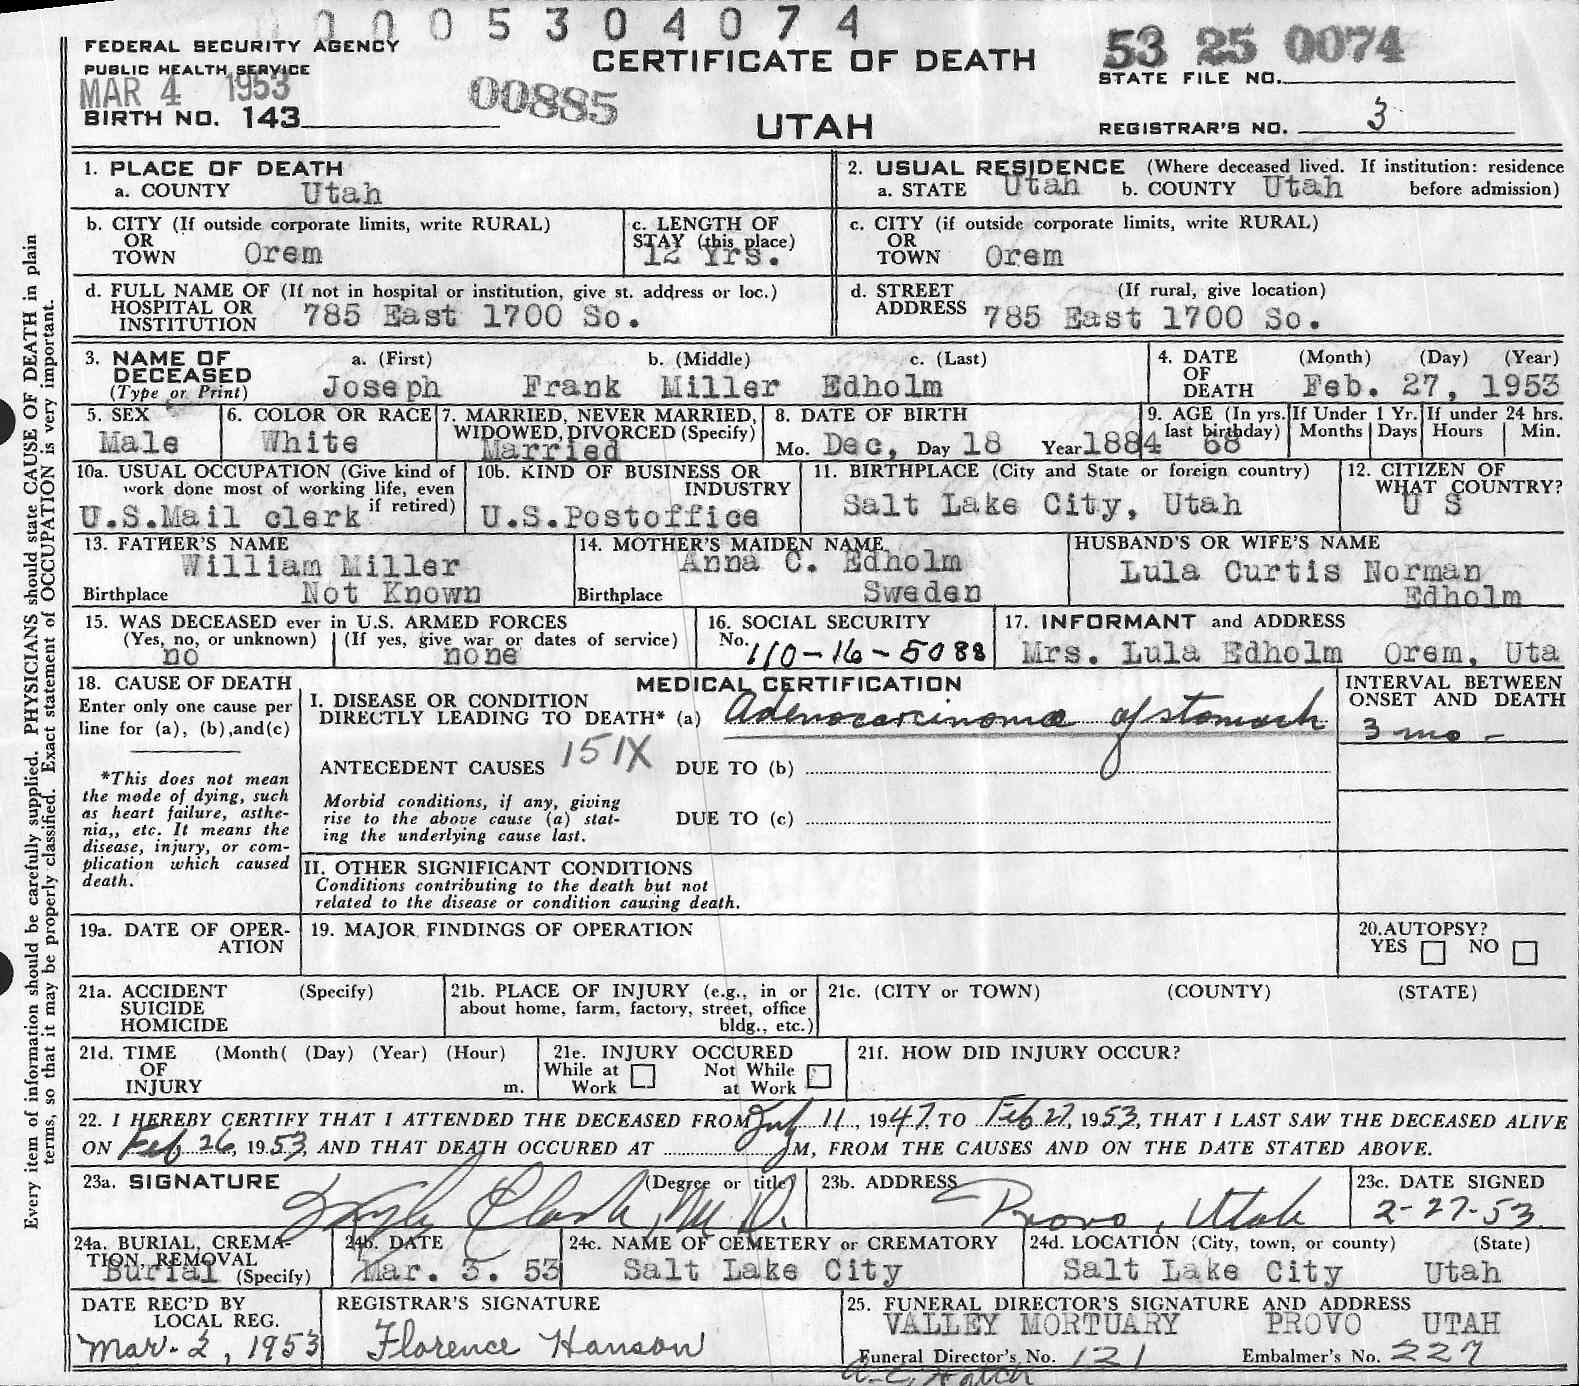 0 0 0 5 3 0 4 0 7 4
FEDERAL SECURITY AGENCY
PUBLIC HEALTH SERVICE
MAR 4 1953
BIRTH NO. 143
00885
CERTIFICATE OF DEATH
UTAH
53 25 0074
STATE FILE NO.
REGISTRAR'S NO. 3
1. PLACE OF DEATH
a. COUNTY Utah
2. USUAL RESIDENCE (Where deceased lived. If institution: residence
a. STATE Utah b. COUNTY Utah before admission)
b. CITY (If outside corporate limits, write RURAL)
OR
TOWN Orem
c. LENGTH OF
STAY (this place)
12 Yrs.
c. CITY (if outside corporate limits, write RURAL)
OR
TOWN Orem
d. FULL NAME OF (If not in hospital or institution, give st. address or loc.)
HOSPITAL OR
INSTITUTION 785 East 1700 So.
d. STREET (If rural, give location)
ADDRESS 785 East 1700 So.
3. NAME OF a. (First) b. (Middle) c. (Last)
DECEASED
(Type or Print) Joseph Frank Miller Edholm
4. DATE (Month) (Day) (Year)
OF
DEATH Feb. 27, 1953
5. SEX
Male
6. COLOR OR RACE
White
7. MARRIED, NEVER MARRIED,
WIDOWED, DIVORCED (Specify)
Married
8. DATE OF BIRTH
Mo. Dec, Day 18 Year 1884
9. AGE (In yrs.
last birthday)
68
If Under 1 Yr.
Months Days
If under 24 hrs.
Hours Min.
10a. USUAL OCCUPATION (Give kind of
work done most of working life, even
if retired)
U.S.Mail clerk
10b. KIND OF BUSINESS OR
INDUSTRY
U.S.Postoffice
11. BIRTHPLACE (City and State or foreign country)
Salt Lake City, Utah
12. CITIZEN OF
WHAT COUNTRY?
U S
13. FATHER'S NAME
William Miller
Birthplace Not Known
14. MOTHER'S MAIDEN NAME
Anna C. Edholm
Birthplace Sweden
HUSBAND'S OR WIFE'S NAME
Lula Curtis Norman
Edholm
15. WAS DECEASED ever in U.S. ARMED FORCES
(Yes, no, or unknown) (If yes, give war or dates of service)
no none
16. SOCIAL SECURITY
No. 110-16-5088
17. INFORMANT and ADDRESS
Mrs. Lula Edholm Orem, Uta
18. CAUSE OF DEATH
Enter only one cause per
line for (a), (b), and (c)
*This does not mean
the mode of dying, such
as heart failure, asthe-
nia,, etc. It means the
disease, injury, or com-
plication which caused
death.
MEDICAL CERTIFICATION
I. DISEASE OR CONDITION
DIRECTLY LEADING TO DEATH* (a) Adenocarcinoma of stomach
151X
ANTECEDENT CAUSES DUE TO (b)
Morbid conditions, if any, giving
rise to the above cause (a) stat-
ing the underlying cause last.
DUE TO (c)
II. OTHER SIGNIFICANT CONDITIONS
Conditions contributing to the death but not
related to the disease or condition causing death.
INTERVAL BETWEEN
ONSET AND DEATH
3 mo -
19a. DATE OF OPER-
ATION
19. MAJOR FINDINGS OF OPERATION
20.AUTOPSY?
YES NO
21a. ACCIDENT (Specify)
SUICIDE
HOMICIDE
21b. PLACE OF INJURY (e.g., in or
about home, farm, factory, street, office
bldg., etc.)
21c. (CITY or TOWN) (COUNTY) (STATE)
21d. TIME (Month( (Day) (Year) (Hour)
OF
INJURY m.
21e. INJURY OCCURED
While at Not While
Work at Work
21f. HOW DID INJURY OCCUR?
22. I HEREBY CERTIFY THAT I ATTENDED THE DECEASED FROM July 11, 1947, TO Feb 27, 1953, THAT I LAST SAW THE DECEASED ALIVE
ON Feb 26, 1953, AND THAT DEATH OCCURED AT M, FROM THE CAUSES AND ON THE DATE STATED ABOVE.
23a. SIGNATURE (Degree or title)
Clark, M. D.
23b. ADDRESS
Provo, Utah
23c. DATE SIGNED
2-27-53
24a. BURIAL, CREMA-
TION, REMOVAL
Burial (Specify)
24b. DATE
Mar. 3. 53
24c. NAME OF CEMETERY or CREMATORY
Salt Lake City
24d. LOCATION (City, town, or county) (State)
Salt Lake City Utah
DATE REC'D BY
LOCAL REG.
Mar. 2, 1953
REGISTRAR'S SIGNATURE
Florence Hanson
25. FUNERAL DIRECTOR'S SIGNATURE AND ADDRESS
VALLEY MORTUARY PROVO UTAH
Funeral Director's No. 121 Embalmer's No. 227
Every item of information should be carefully supplied. PHYSICIANS should state CAUSE OF DEATH in plain
terms, so that it may be properly classified. Exact statement of OCCUPATION is very important.